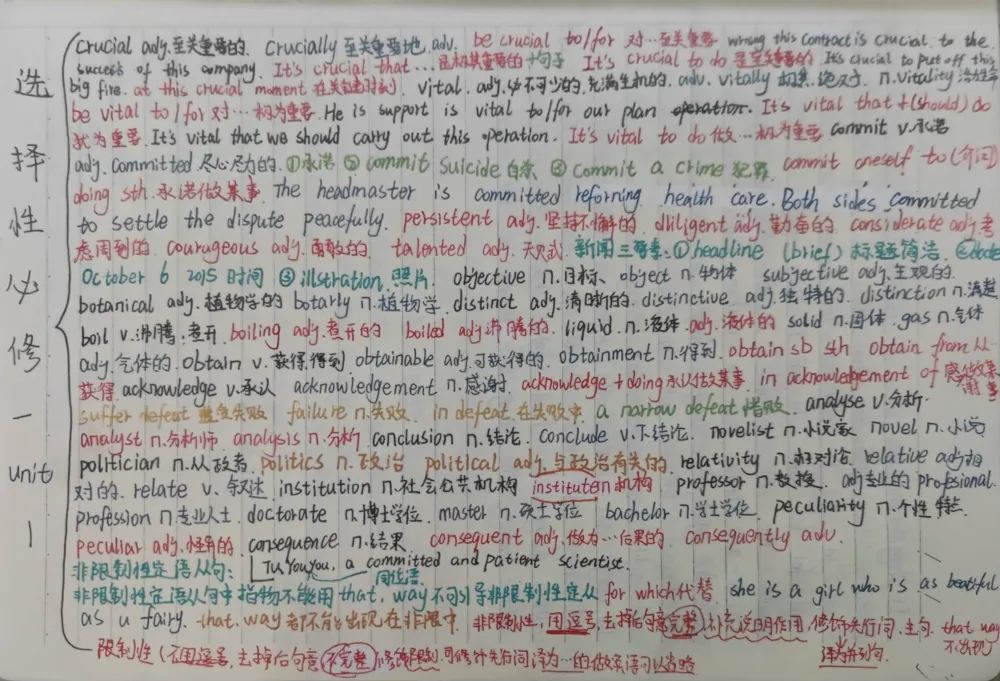 选择性必修一 unit 1
crucial adj.至关重要的. crucially 至关重要地 adv. be crucial to/for 对…至关重要 this contract is crucial to the
success of this company. It's crucial that … 是极其重要的+句子 It's crucial to do 是至关重要的. It's crucial to put off this
big fire. at this crucial moment 在关键时刻. vital. adj.必不可少的,充满生机的. adv. vitally 极其,绝对. n.vitality
be vital to/for 对…极为重要. He is support is vital to/for our plan operation. It's vital that +(should) do
为重要. It's vital that we should carry out this operation. It's vital to do 做…极为重要 commit v.承诺
adj. committed 尽心尽力的. ①承诺 ② commit suicide 自杀 ③ Commit a crime 犯罪. commit oneself to (介词)
doing sth. 承诺做某事 The headmaster is committed referring health care. Both sides committed
to settle the dispute peacefully. persistent adj. 坚持不懈的. diligent adj. 勤奋的 considerate adj.考
虑周到的. courageous adj. 勇敢的 talented adj. 新闻三要素: ① headline (brief) 标题简洁. ② date
October 6 2015 时间 ③ illstration 照片 objective n.目标. object n.物体 subjective adj.主观的.
botanical adj.植物学的 botany n.植物学. distinct adj.清晰的. distinctive adj.独特的. distinction n.清楚
boil v.沸腾.煮开 boiling adj.煮开的 boiled adj沸腾的. liquid. n.液体.adj.液体的 solid n.固体. gas n.气体
adj.气体的. obtain v.获得.得到 obtainable adj.可获得的. obtainment n.得到. obtain sb sth obtain from 从
获得 acknowledge v.承认 acknowledgement n.感谢. acknowledge + doing 承认做某事 in acknowledgement of 感谢某事
suffer defeat 遭受失败 failure n.失败. in defeat 在失败中 a narrow defeat 惜败. analyse v.分析.
analyst n.分析师 analysis n.分析 conclusion n.结论. conclude v.下结论. novelist n.小说家 novel n.小说
politician n.从政者. politics n.政治 political adj.与政治有关的. relativity n.相对论. relative adj相
对的. relate v. 叙述. institution n.社会公共机构 institute n机构. professor n.教授. adj专业的 profesional.
profession n.专业人士. doctorate n.博士学位. master n.硕士学位 bachelor n.学士学位. peculiarity n.个性特点
peculiar adj.怪异的. consequence n.结果 consequent adj.做为…后果的. consequently adv.
非限制性定语从句: Tu Youyou, a committed and patient scientist.
同位语
非限制性定语从句中指物不能用 that, way 不可引导非限制性定从 for which代替 she is a girl who is as beatiful
as a fairy. that, way 都不能出现在非限中. 非限制性,用逗号,去掉后句意完整 补充说明作用.修饰先行词.主句. that way 不出现)
译为并列句.
限制性(不用逗号,去掉后句意不完整)修饰限制.可修饰先行词译为…的做宾语可以省略